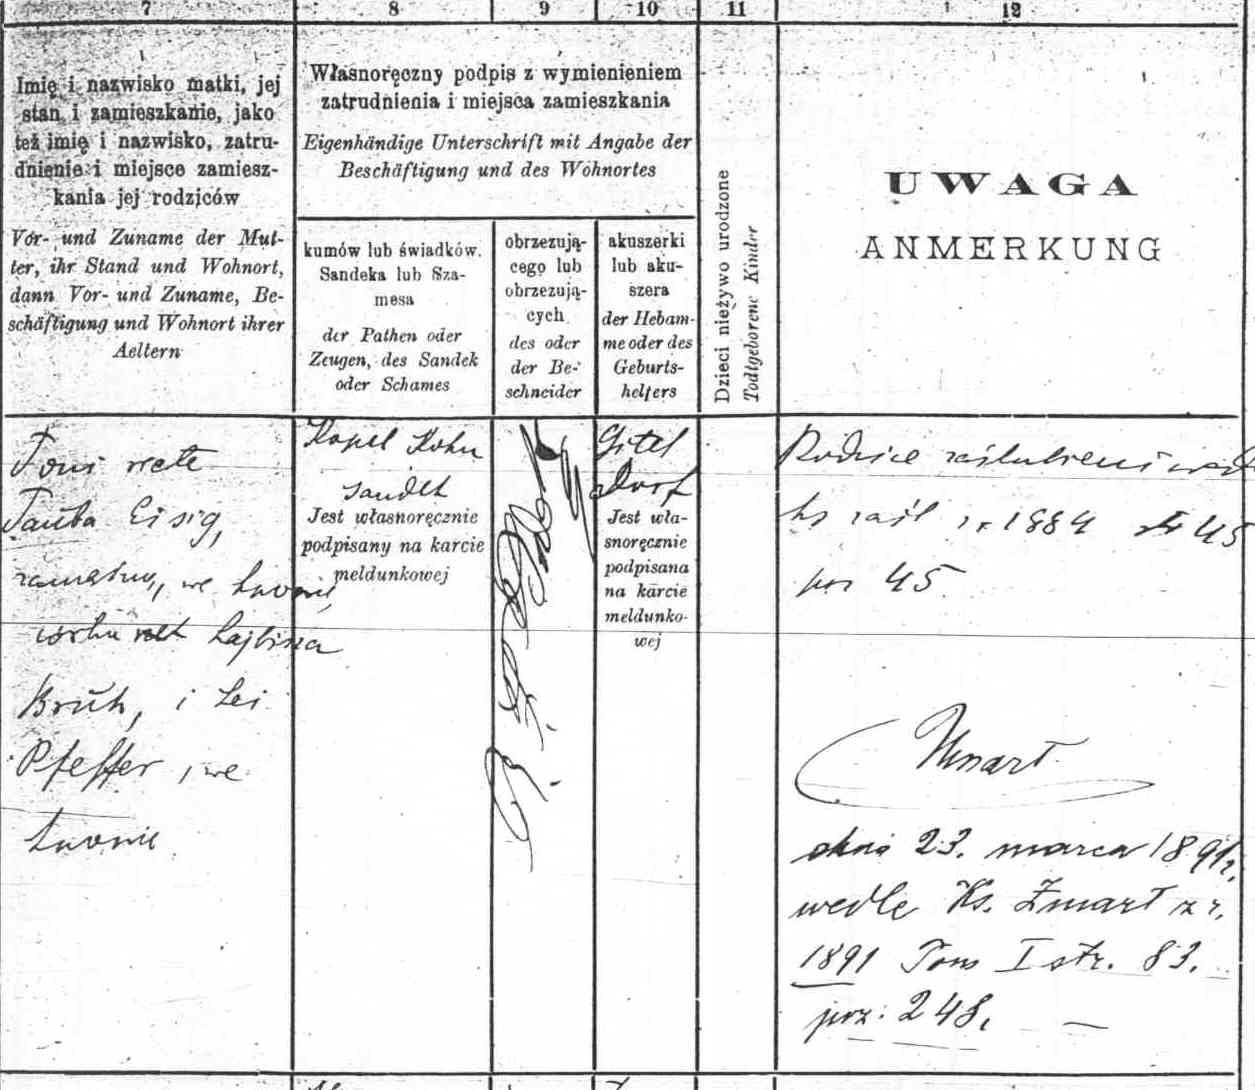 7
8
9
10
11
12
Imię i nazwisko matki, jej
stan i zamieszkanie, jako
też imię i nazwisko, zatru-
dnienie i miejsce zamiesz-
kania jej rodziców
Vor- und Zuname der Mut-
ter, ihr Stand und Wohnort,
dann Vor- und Zuname, Be-
schäftigung und Wohnort ihrer
Aeltern
Własnoręczny podpis z wymienieniem
zatrudnienia i miejsca zamieszkania
Eigenhändige Unterschrift mit Angabe der
Beschäftigung und des Wohnortes
kumów lub świadków.
Sandeka lub Sza-
mesa
der Pathen oder
Zeugen, des Sandek
oder Schames
obrzezują-
cego lub
obrzezują-
cych
des oder
der Be-
schneider
akuszerki
lub aku-
szera
der Hebam-
me oder des
Geburts-
helfers
Dzieci nieżywo urodzone
Todtgeborene Kinder
UWAGA
ANMERKUNG
Toni recte
Tauba Eisig,
zamężna, we Lwowie,
córka Lajbisza
Brüh, i Lei
Pfeffer, we
Lwowie
Kopel Kohn
Sandek
Jest własnoręcznie
podpisany na karcie
meldunkowej
Gitel
Dorf
Jest wła-
snoręcznie
podpisana
na karcie
meldunko-
wej
Rodzice zaślubieni
ks zaśl z r 1884 str 45
poz 45
Umarł
dnia 23. marca 1891 r.
wedle Ks. Zmarł z r.
1891 Tom I str. 83.
poz: 248. —